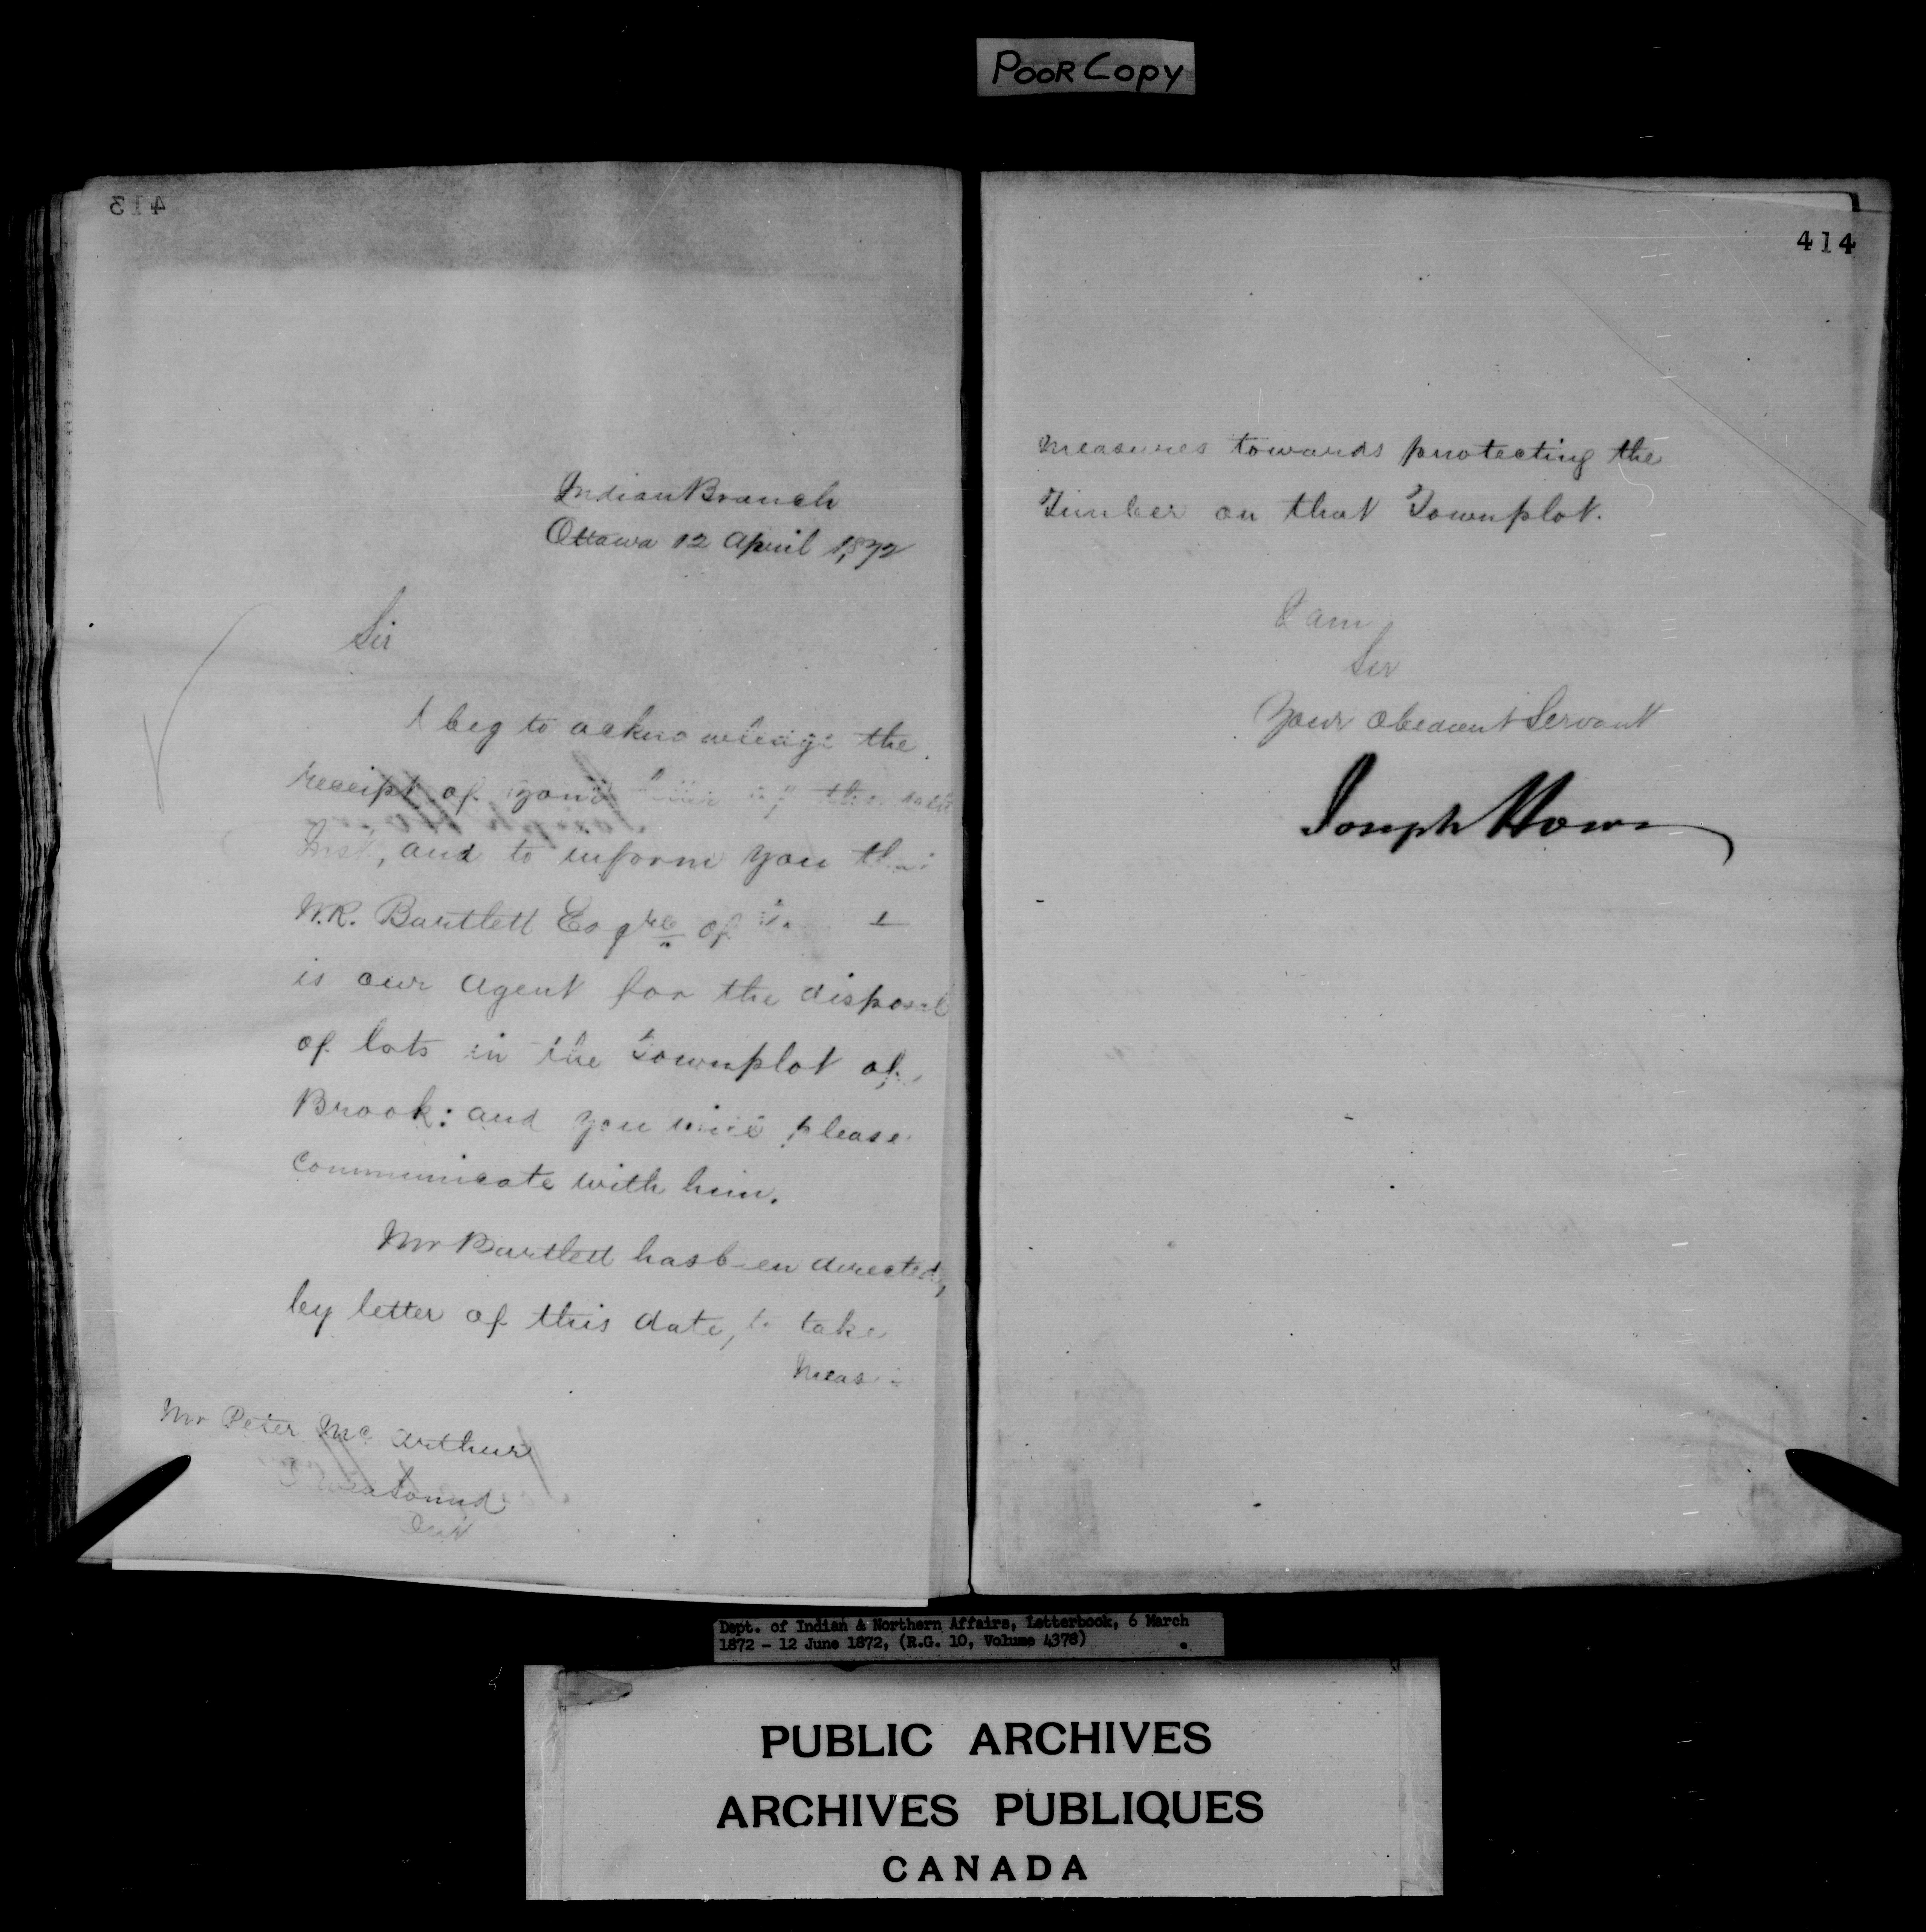 POOR Copy
413
Indian Branch
Ottawa 12 April 1872
Sir
I beg to acknowledge the
receipt of your the
Inst, and to inform you
W.R. Bartlett Esqre of
is our agent for the disposal
of lots in the Townplot of
Brook: and you will please
communicate with him.
Mr Bartlett has been directed,
by letter of this date, to take
Meas
Mr Peter McArthur
Sound
Ont
414
measures towards protecting the
Timber on that Townplot.
I am
Sir
Your obedient Servant
Joseph Howe
Dept. of Indian & Northern Affairs, Letterbook, 6 March
1872 - 12 June 1872, (R.G. 10, Volume 4378)
PUBLIC ARCHIVES
ARCHIVES PUBLIQUES
CANADA